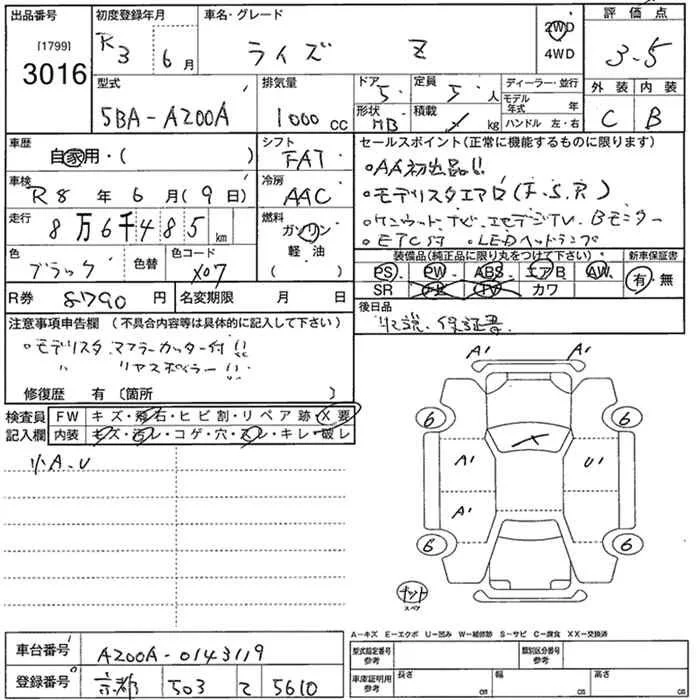 出品番号 初度登録年月 車名・グレード 2WD 4WD 評価点
[1799]
3016 R3 6月 ライズ Z 3.5
型式 排気量 ドア 定員 ディーラー・並行 外装 内装
5BA-A200A 1000cc 5. 5.人 モデル年式 年 C B
形状 HB 積載 kg ハンドル 左・右
車歴 シフト セールスポイント(正常に機能するものに限ります)
自家用・( ) FAT 。AA初出品!!
車検 冷房 。モデリスタエアロ(F.S.R)
R8年6月(9日) AAC 。ケンウッドナビ.フルセグTV.Bモニター
走行 燃料 。ETC付 。LEDヘッドランプ
8万6千485km ガソリン 軽・油 ( )
色 色替 色コード 装備品(純正品に限り丸をつけて下さい) 新車保証書
ブラック X07 PS PW ABS エアB AW 有・無
SR TV カワ
R券 8790円 名変期限 月 日 後日品
取説.保証書.
注意事項申告欄 (不具合内容等は具体的に記入して下さい)
。モデリスタ マフラーカッター付!!
〃 リヤスポイラー!!
修復歴 有〔箇所 〕
検査員 FW キズ・飛石・ヒビ割・リペア跡・X要
記入欄 内装 キズ・汚レ・コゲ・穴・スレ・キレ・破レ
小A.U
A' A'
6 6
A' U'
A'
6 6
ナット
スペア
A−キズ E−エクボ U−凹み W−補修跡 S−サビ C−腐食 XX−交換済
車台番号 A200A-0143119 型式指定番号 参考 類別区分番号 参考
登録番号 京都 503 て 5610 車庫証明用 参考 長さ cm 幅 cm 高さ cm